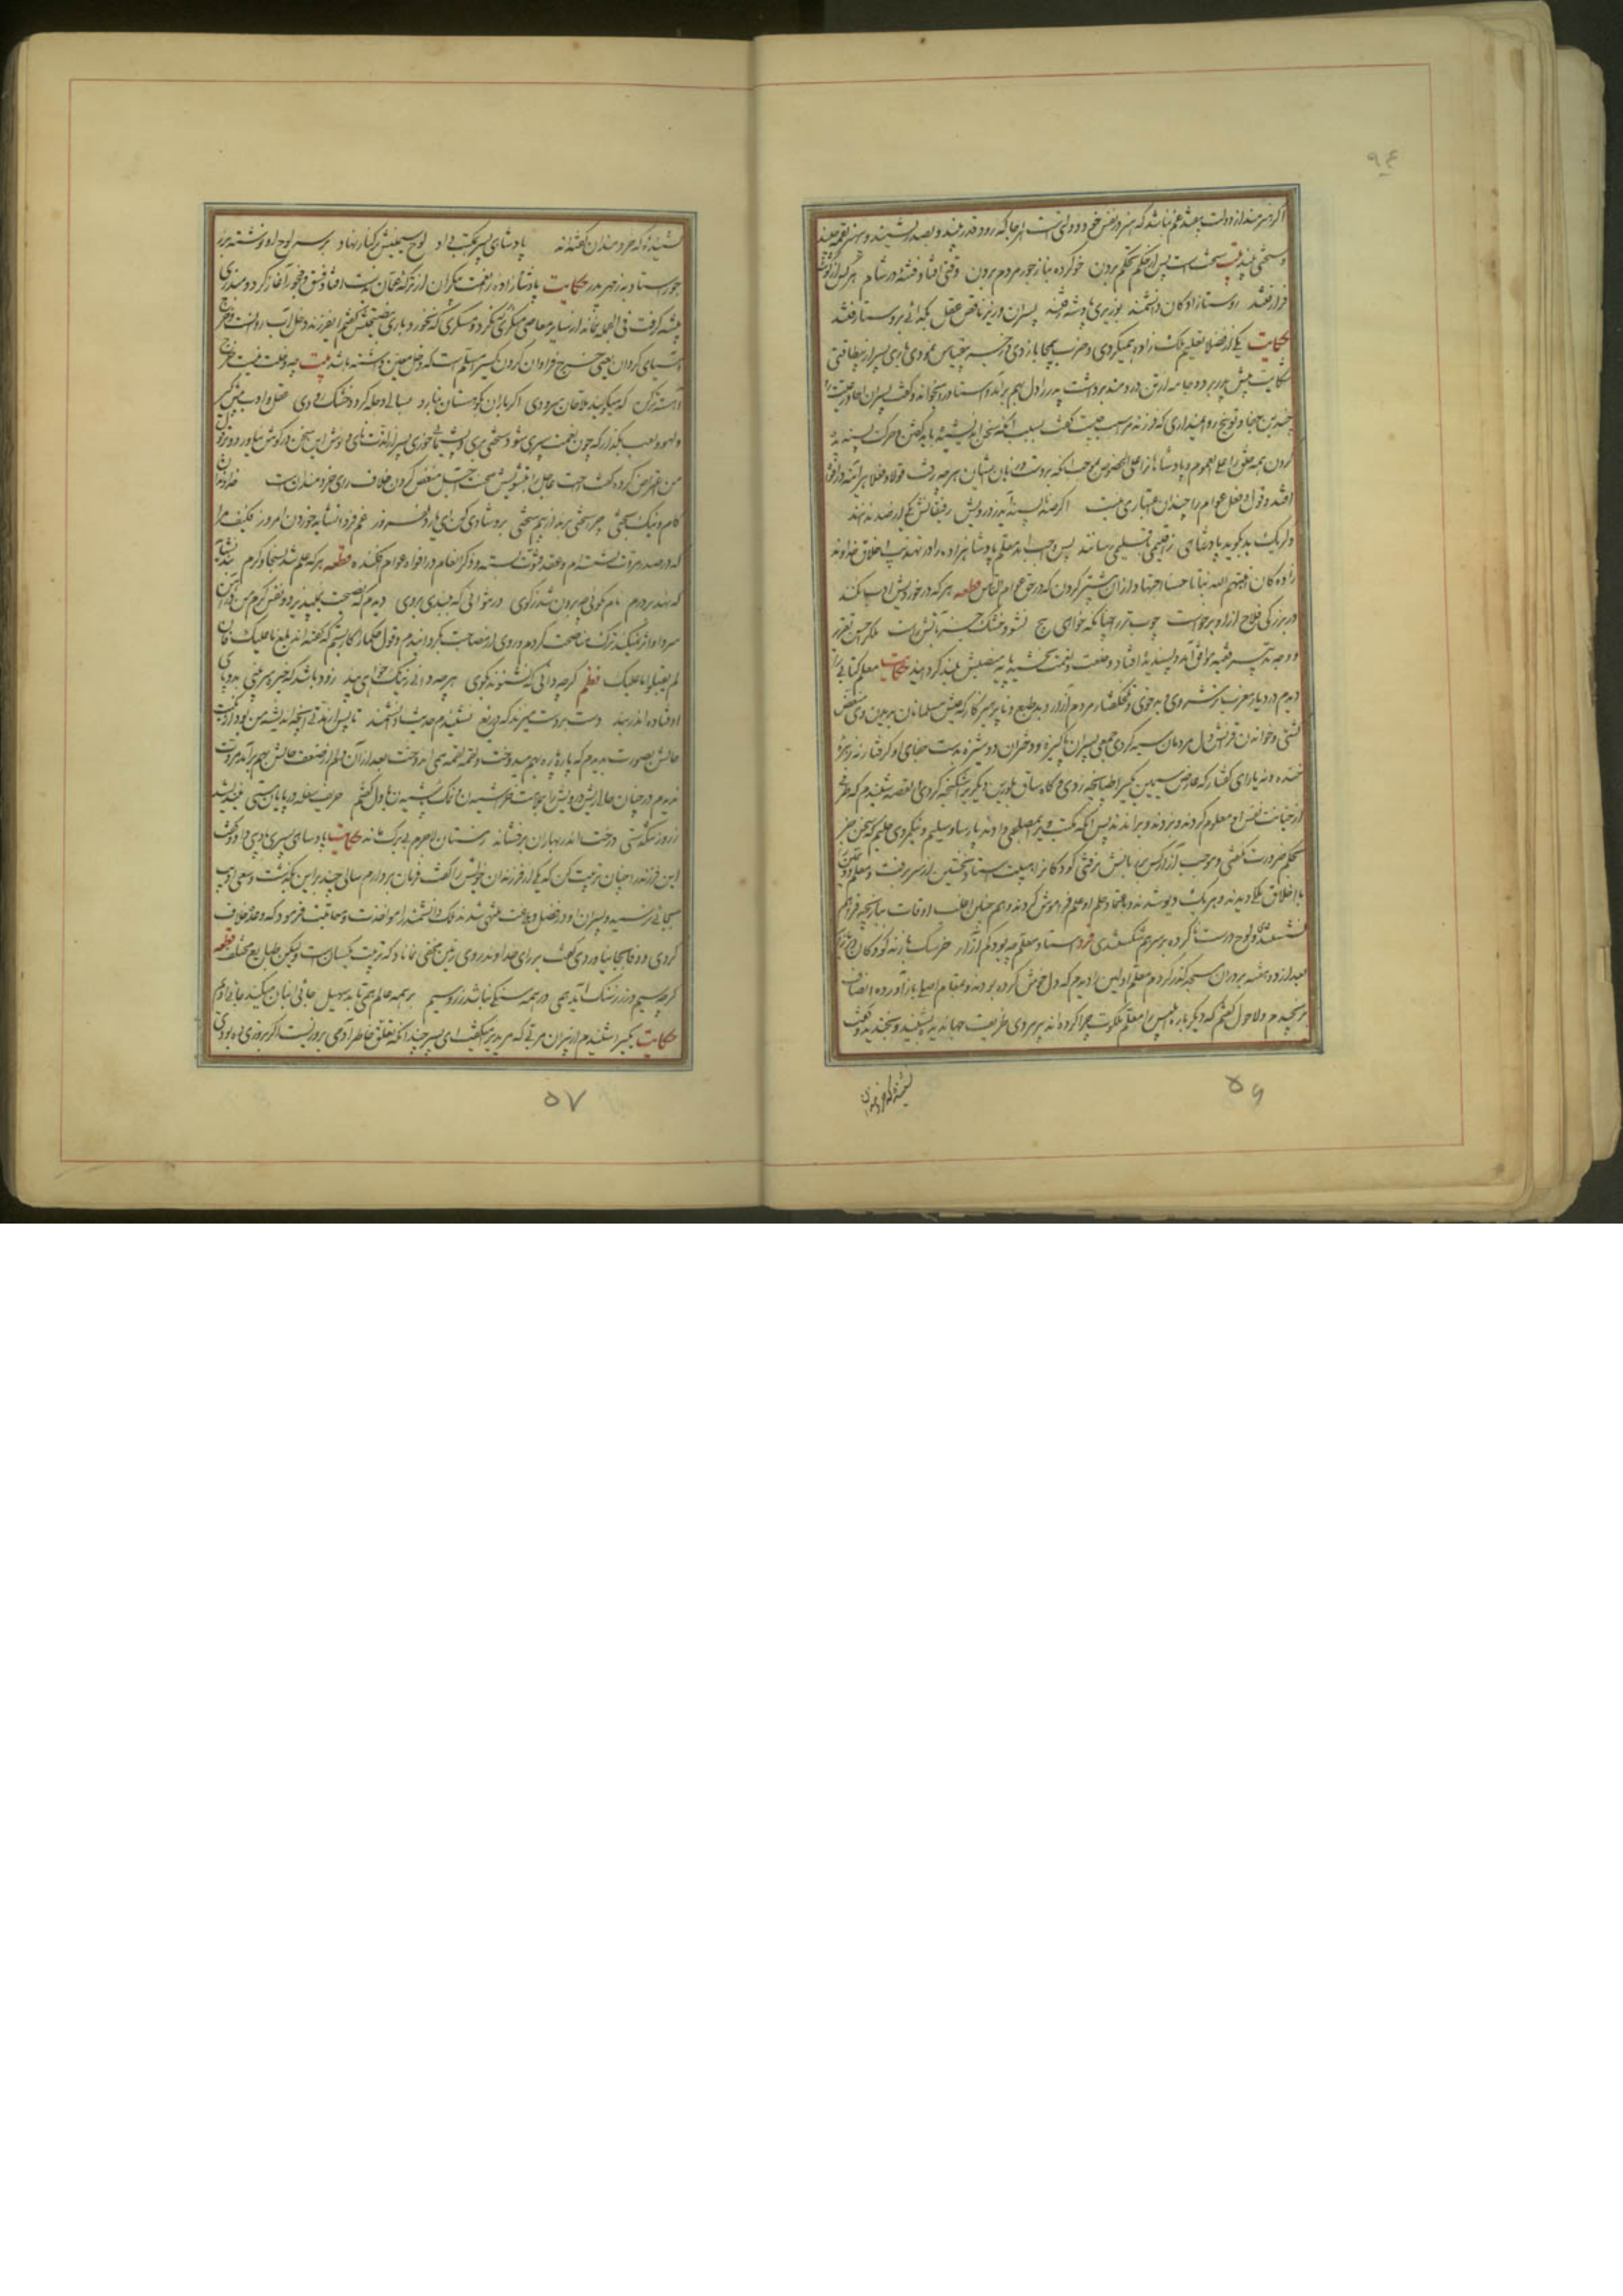 ۹۴
اگر هنرمند از دولت بیفتد غم نباشد که هنر در نفس خود دولتی است هرجا که رود قدر بیند و بصدر نشیند و بی هنر لقمه چیند
و سختی بیند بیت سخت است پس از جاه تحکم بردن خو کرده بناز جور مردم بردن وقتی افتاد فتنه در شام هر کس از گوشه
فرا رفتند روستا زادگان دانشمند بوزیری پادشه رفتند پسران وزیر ناقص عقل بگدائی بروستا رفتند
حکایت یکی از فضلا تعلیم ملک زاده همیکردی و ضرب بیمحابا زدی و زجر بیقیاس نمودی باری پسر از بیطاقتی
شکایت پیش پدر برد و جامه از تن دردمند برداشت پدر را دل بهم برآمد استاد را بخواند و گفت پسران آحاد رعیت را
چندین جفا و توبیخ روا نمیداری که فرزند مرا سبب چیست گفت بسبب آنکه سخن اندیشیده باید گفتن و حرکت پسندیده
کردن همه خلق را علی العموم و پادشاهانرا علی الخصوص بموجب آنکه بر دست و زبان ایشان هر چه رفت قولا و فعلا هر آینه در افواه
افتد و قول و فعل عوام را چندان اعتباری نیست اگر صد ناپسند آید ز درویش رفیقانش یکی از صد ندانند
وگر یک بد گوید پادشاهی ز اقلیمی باقلیمی رسانند پس واجب آمد معلم پادشاهزاده را در تهذیب اخلاق خداوند
زادگان انبتهم الله نباتا حسنا اجتهاد از آن بیشتر کردن که در حق عوام الناس قطعه هر که در خوردیش ادب نکنند
در بزرگی فلاح ازو برخواست چوب تر را چنانکه خواهی پیچ نشود خشک جز بآتش راست ملک را حسن تقریر
و وجه تدبیر فقیه موافق آمد و پسندیده افتاد و خلعت و نعمت بخشید و پایه منصبش بلند گردانید حکایت معلم کتابی را
دیدم در دیار مغرب ترشروی بدخوی و تلخ گفتار مردم آزار و بد طبع و ناپرهیزکار که عیش مسلمانان بدیدن وی منغص
گشتی و خواندن قرآنش دل مردمان سیه کردی جمعی پسران پاکیزه و دختران دوشیزه بدست جفای او گرفتار نه زهره
خنده و نه یارای گفتار گه عارض سیمین یکیرا طپانچه زدی و گاه ساق بلورین دیگریرا شکنجه کردی القصه شنیدم که طرفی
از خباثت نفس او معلوم کردند و بزدند و براندند پس آنکه مکتب ویرا بمصلحی دادند پارسا و سلیم و نیکمردی حلیم که سخن جز
بحکم ضرورت نگفتی و موجب آزار کس بر زبانش نرفتی کودکانرا هیبت استاد نخستین از سر برفت و معلم دومین را
با اخلاق ملکی دیدند و هر یک دیو شدند و باعتماد حلم او علم فراموش کردند و هم چنین اغلب اوقات ببازیچه فراهم
نشستندی و لوح درست ناکرده بر سر هم شکستندی فرد استاد معلم چو بود کم آزار خرسک بازند کودکان در بازار
بعد از دو هفته بر در آن مسجد گذر کردم معلم اولین را دیدم که دل خوش کرده بودند و بمقام اصلی باز آورده انصاف
برنجیدم و لاحول گفتم که دیگر باره ابلیس را معلم ملائکه چرا کرده اند پیر مردی ظریف جهاندیده بشنید و بخندید و گفت
نشنیدهٔ که خردمندان
۵۶
نشنیدهٔ که خردمندان گفته اند پادشاهی پسر بمکتب داد لوح سیمینش در کنار نهاد بر سر لوح او نوشته بزر
جور استاد به ز مهر پدر حکایت پادشازاده را نعمت بیکران از ترکهٔ عمان بدست افتاد و فسق و فجور آغاز کرد و مبذری
پیشه گرفت فی الجمله نماند از سایر معاصی منکری که نکرد و مسکری که نخورد باری بنصیحتش گفتم ای فرزند دخل آب روانست و خرج
آسیای گردان یعنی خرج فراوان کردن کسیرا مسلم است که دخل معین داشته باشد بیت چو دخلت نیست خرج
آهسته تر کن که میگویند ملاحان سرودی اگر باران بکوهستان نبارد بسالی دجله گردد خشک رودی عقل و ادب پیش گیر
و لهو و لعب بگذار که چون نعمت سپری شود سختی بری و پشیمانی خوری پسر از لذت نای و نوش این سخن در گوش نیاورد و بر قول
من اعتراض کرد و گفت راحت عاجل بتشویش محنت آجل منغص کردن خلاف رای خردمندان است خداوندان
کام و نیک بختی چرا سختی برند از بیم سختی برو شادی کن ای یار دلفروز غم فردا نشاید خوردن امروز فکیف مرا
که در صدر مروت نشسته ام و عقد فتوت بسته و ذکر انعام در افواه عوام افکنده قطعه هر که علم شد بسخا و کرم بند نشاید
که نهد بر درم نام نکوئی چو برون شد بکوی در نتوانی که ببندی بروی دیدم که نصیحت نمیپذیرد و نفس گرم من در آهن
سرد او اثر نمیکند ترک مناصحت کردم و روی از مصاحبت بگردانیدم و قول حکما را کار بستم که گفته اند بلغ ما علیک فان
لم یقبلوا ما علیک نظم گر چه دانی که نشنوند بگوی هر چه دانی ز نیکخواهی و پند زود باشد که خیره سر بینی بدو پای
اوفتاده اندر بند دست بر دست میزند که دریغ نشنیدم حدیث دانشمند تا پس از مدتی آنچه اندیشهٔ من بود از نکبت
حالش بصورت بدیدم که پاره پاره بهم میدوخت و لقمه لقمه همی اندوخت بعد از آن دلم از ضعف حالش بهم برآمد مروت
ندیدم در چنان حالی ریش درویش را بملامت خراشیدن و نمک پاشیدن با دل گفتم حریف سفله در پایان مستی نیندیشد
ز روز تنگدستی درخت اندر بهاران برفشاند زمستان لاجرم بی برگ ماند حکایت پادشاهی پسری بادیبی داد و گفت
این فرزند را چنان تربیت کن که یکی از فرزندان خویش را گفت فرمان بردارم سالی چند بر این بگذشت و سعی ادیب
بجائی نرسید و پسران او در فضل و بلاغت منتهی شدند ملک دانشمند را مواخذت و معاتبت فرمود که وعده خلاف
کردی و وفا بجا نیاوردی گفت بر رای خداوند روی زمین مخفی نماناد که تربیت یکسان است ولیکن طبایع مختلف قطعه
گر چه سیم و زر ز سنگ آید همی در همه سنگی نباشد زر و سیم بر همه عالم همی تابد سهیل جائی انبان میکند جائی ادیم
حکایت یکیرا شنیدم از پیران مربی که مریدیرا میگفت ای پسر چندانکه تعلق خاطر آدمی بروزیست اگر بروزی ده بودی
۵۷